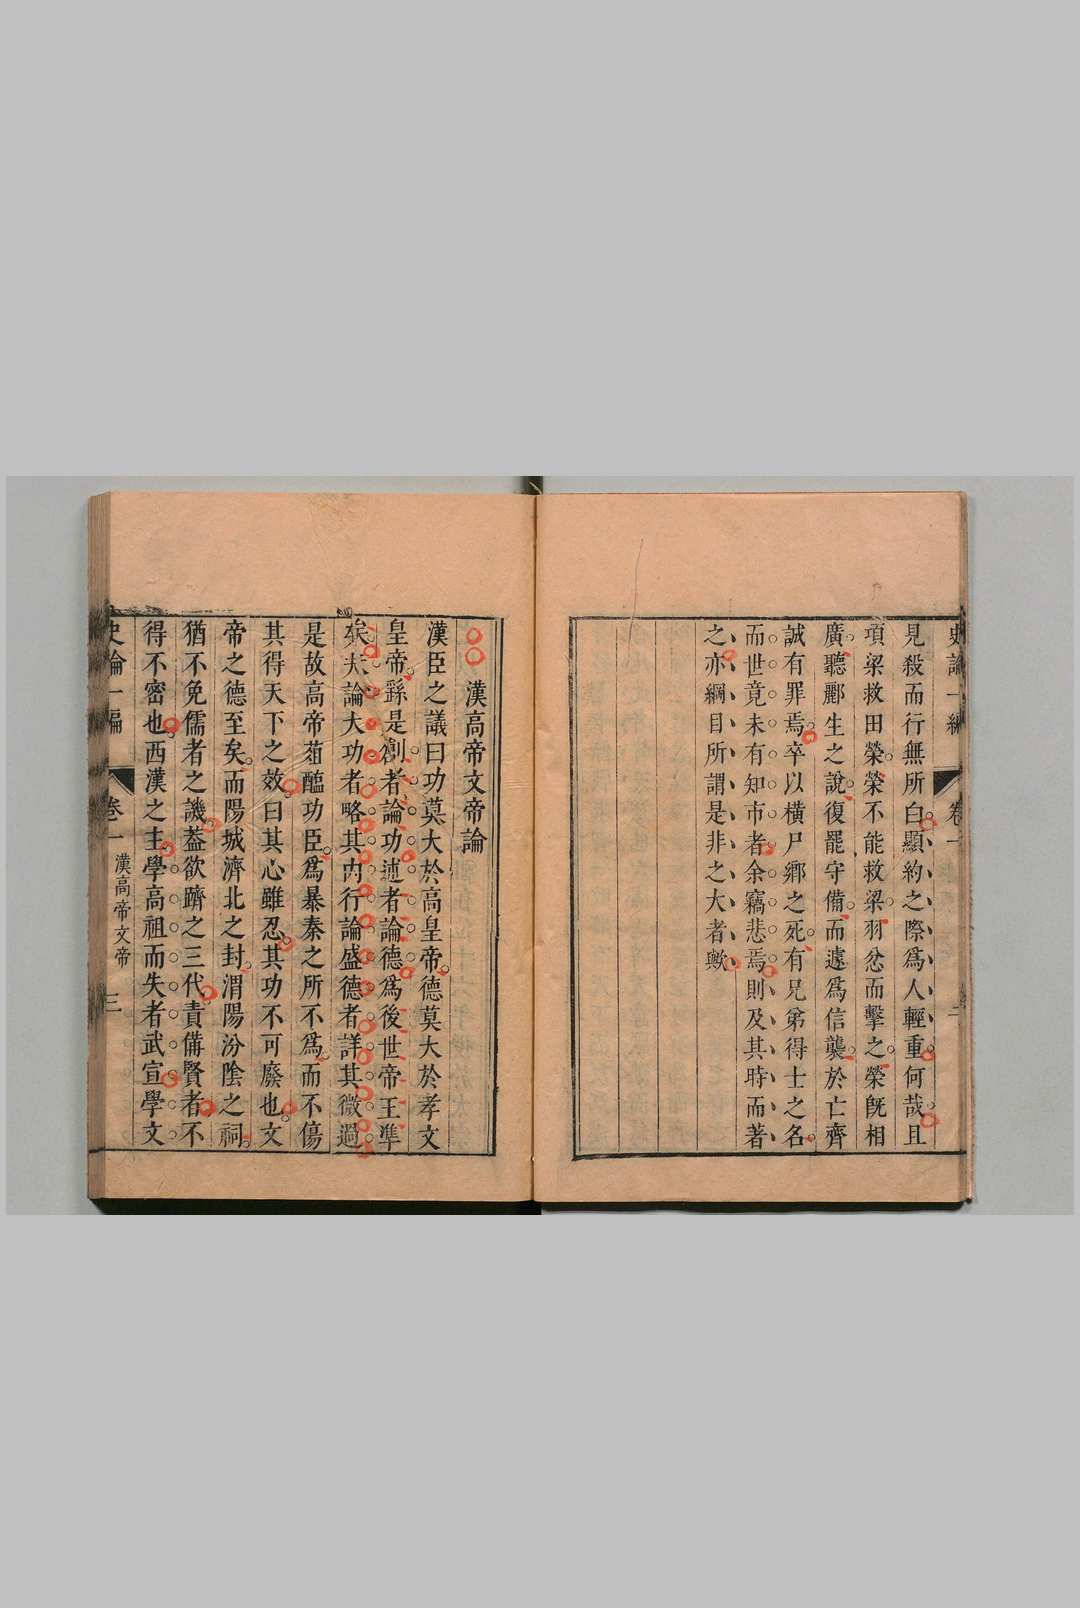 史論一編
卷一
二
見殺而行無所白顯約之際爲人輕重何哉且
項梁救田榮榮不能救梁羽忿而擊之榮旣相
廣聽酈生之說復罷守備而遽爲信襲於亡齊
誠有罪焉卒以橫尸鄉之死有兄弟得士之名
而世竟未有知市者余竊悲焉則及其時而著
之亦綱目所謂是非之大者歟
漢高帝文帝論
漢臣之議曰功莫大於高皇帝德莫大於孝文
皇帝繇是創者論功述者論德爲後世帝王準
矣夫論大功者略其內行論盛德者詳其微過
是故高帝葅醢功臣爲暴秦之所不爲而不傷
其得天下之效曰其心雖忍其功不可廢也文
帝之德至矣而陽城濟北之封渭陽汾陰之祠
猶不免儒者之譏葢欲躋之三代責備賢者不
得不密也西漢之主學高祖而失者武宣學文
史論一編
卷一
漢高帝文帝
三